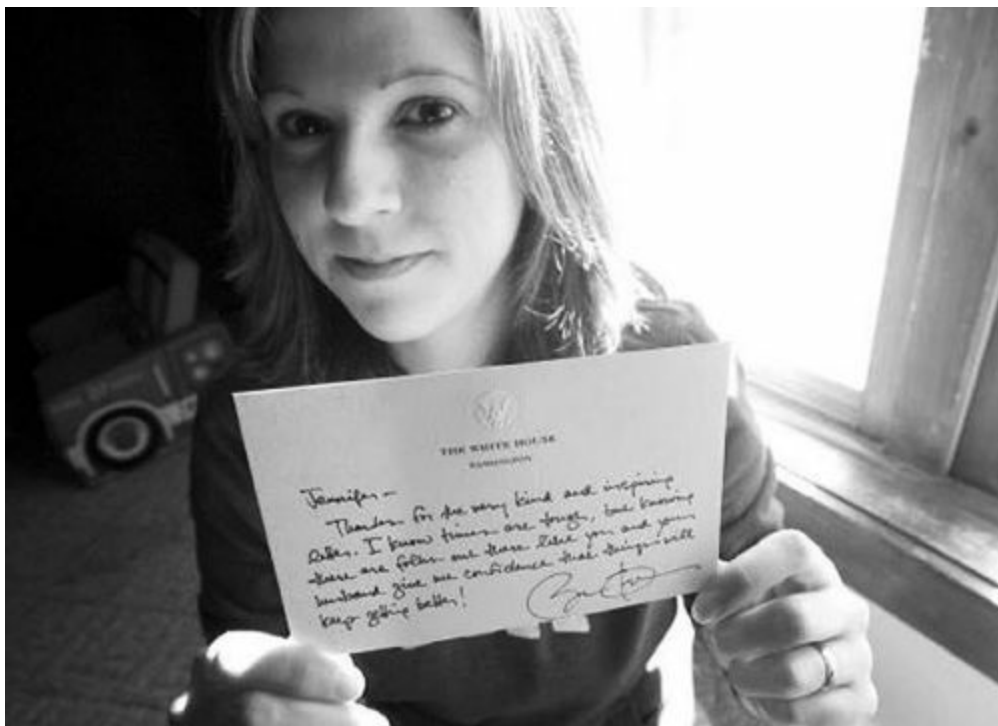 THE WHITE HOUSE
WASHINGTON
Jennifer—
Thanks for the very kind and inspiring
letter. I know times are tough, but knowing
there are folks out there like you and your
husband give me confidence that things will
keep getting better!